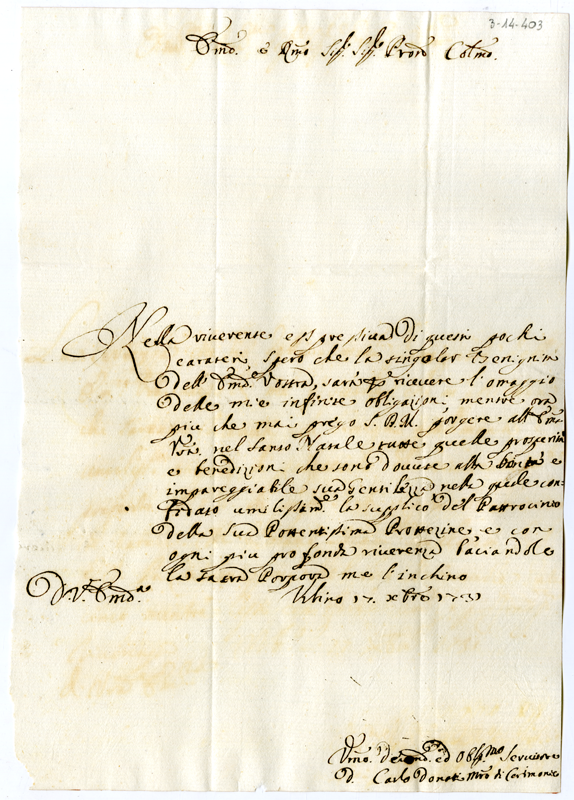 3-14-403
Em.º e Rmo Sig.r Sig.r Pron Colmo.
Nella riverente espressiva di questi pochi
carateri spero che la singolar Benignità
dell' Em.ª Vostra, sarà p ricevere l'omaggio
delle mie infinite obligazioni mentre ora
più che mai prego S.D.M. porgere all' Ema
Vra nel Santo Natale tutte quelle prosperità
e benedizioni che sono dovute alla bontà e
impareggiabile sua Gentilezza nella quale con-
fidato umilissim.e la supplico del Patrocinio
della Sua Pottentissima Prottezine, e con
ogni più profonda riverenza baciandole
la sacra Porpora me l'inchino
D. V.ª Em.ª
Urbino 17. xbre 1731
Vmo. ed Oblig.mo Servitore
D. Carlo Donati Mro di Cerimonie